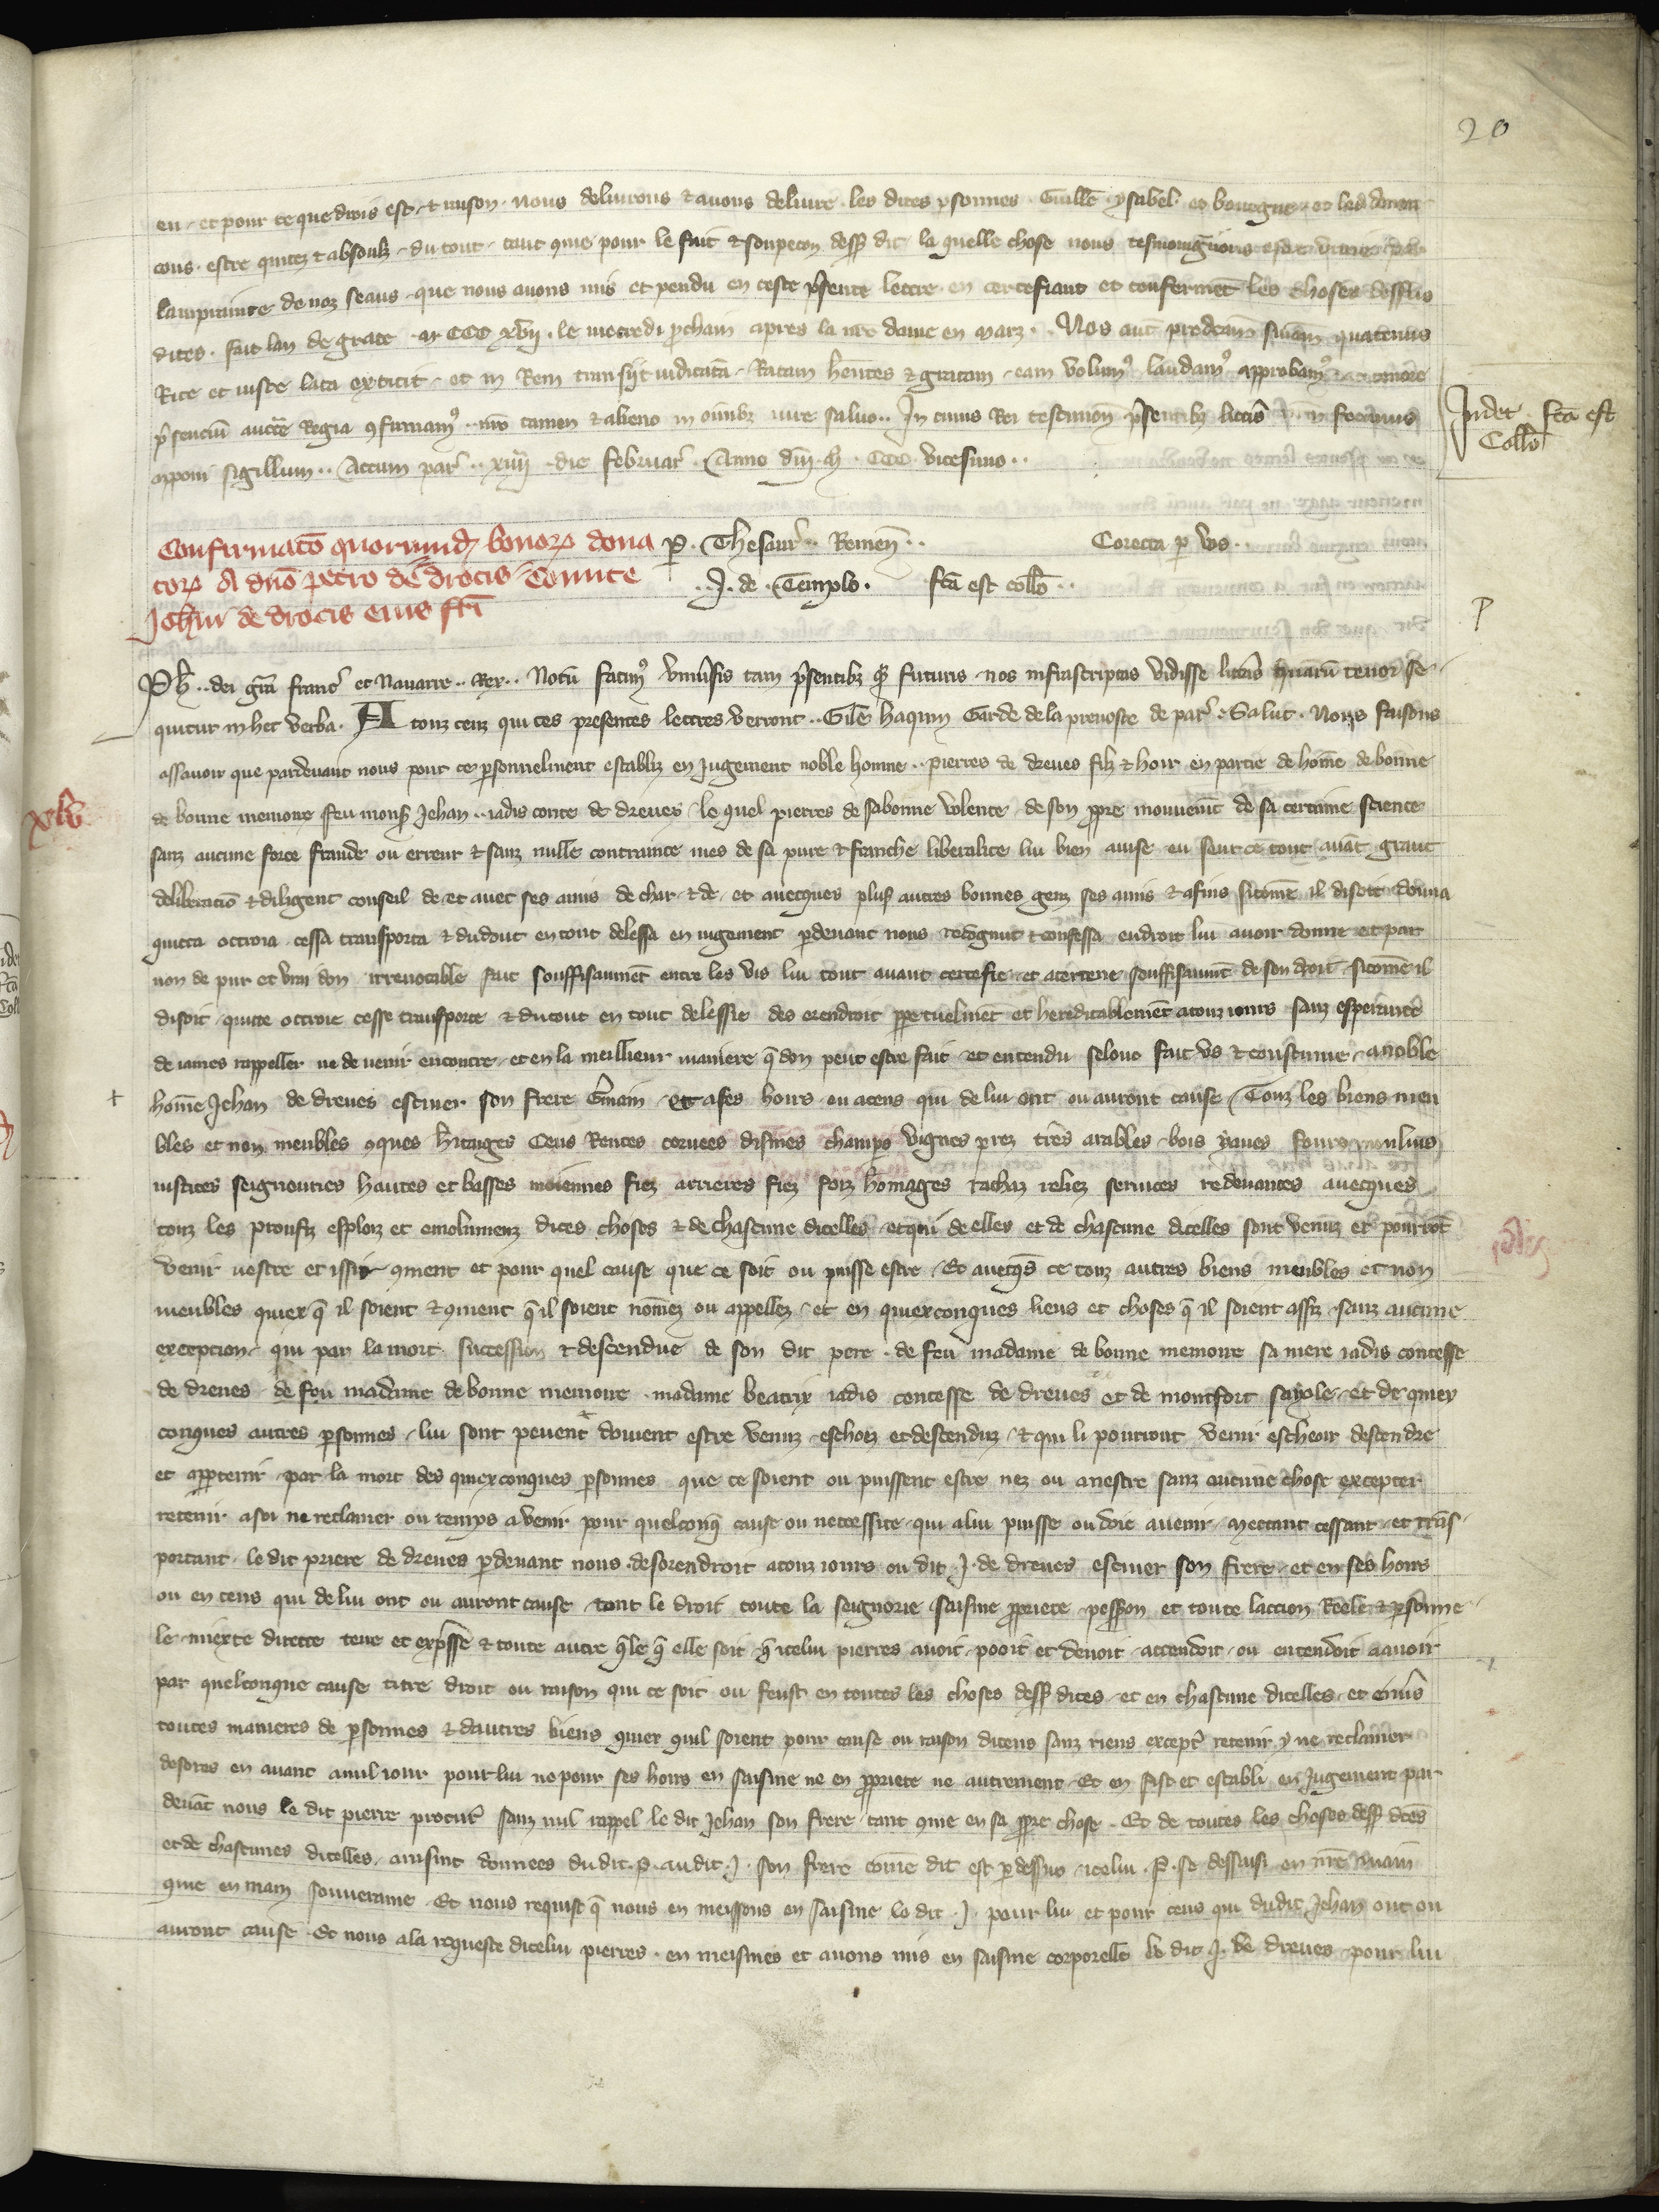 20
en et pour ce que drois est et raison nous delivrons & avons delivre les dites psonnes Guille ysabel et bourgne et les denon
cons estre quitez & absoulz du tout tant que pour le fait & soupecon dess dit la quelle chose nous tesmoignons estre vraie par
lampriainte de noz seaus que nous avons mis et pendu en ceste psente lettre en certefiant et conferment les choses dessus
dites fait lan de grace m CCC xvii le mecredi pchain apres la nre dame en marz Nos aut predcam snam quatenus
Rite et iuste lata extitit et in Rem transiit iudicata Ratam hentes & gratam eam volum laudam approbam tenore
psenciu auctte Regia confirmam nro tamen & alieno in omibz iure salvo In cuius Rei testimon psentibz litis nrm fecimus
apponi sigillum Actum par xiiii die februar Anno dni m CCC vicesimo
Judet fca est
Coll
Confirmaco quorumd bonor dona
tor A dno petro de drocis Comite
Johni de drocis eius fri
P Thesaur Remen
J de Templo fca est collo
Corecta p vos
P
xlv
Ph dei gra franc et Navarre Rex Notu facim univsis tam psentibz q futuris nos infrascriptas vidisse litas quaru tenor se
quitur in hec verba A touz ceuz qui ces presentes lettres verront Gile haquin Garde de la prevoste de par Salut Nous faisons
assavoir que pardevant nous pour ce psonnelment establiz en jugement noble homme pierres de dreues filz & hoir en partie de home de bonne
de bonne memoyre feu mons Jehan iadis conte de dreues le quel pierres de sa bonne volente de son ppre mouvemt de sa certaine science
sanz aucune force fraude ou erreur & sanz nulle contrainte mes de sa pure & franche liberalite lui bien avise eu seur ce tout avat grant
deliberacio & diligent conseil de et avec ses amis de char & de et avecques plus autres bonnes genz ses amis & afins sicome il disoit donna
quitta octroia cessa transporta & du tout en tout delessa en iugement pdevant nous recognut & confessa endroit lui avoir donne et par
non de pur et vrai don irrevocable fait souffisaument entre les vis lui tout avant certefie et acertene souffisaumt de son droit sicome il
disoit quitte octroie cesse transporte & du tout en tout delessie des orendroit ppetuelmet et hereditablemet a touz iours sanz esperance
de iames rappeller ne de venir encontre et en la meillieur maniere q don peut estre fait et entendu selonc fait us & coustume a noble
home Jehan de dreues escuier son frere Gmain et a ses hoirs ou a ceus qui de lui ont ou auront cause Touz les biens meu
bles et non meubles conques hitages Cens Rentes corvees dismes champs vignes prez tres arables bois yaues fours moulins
iustices seigneuries hautes et basses moiennes fiez arrieres fiez foiz homages rachaz reliez services redevances avecques
touz les proufiz esploiz et emolumenz dites choses & de chascune dicelles et qui de elles et de chascune dicelles sont venuz et pourrot
venir nestre et issir coment et pour quel cause que ce soit ou puisse estre Et avecqs ce touz autres biens meubles et non
meubles quiex q il soient & coment q il soient nomez ou appellez et en quiexconques lieus et choses q il soient assiz sanz aucune
exception qui par la mort succession & descendue de son dit pere de feu madame de bonne memoire sa mere iadis contesse
de dreues de feu madame de bonne memoire madame beatrix iadis contesse de dreues et de montfort sayole et de quiex
conques autres psonnes lui sont pevent & doivent estre venuz escheuz et descenduz & qui li pourront venir escheoir descendre
et appartenir par la mort des quiexconques psonnes que ce soient ou puissent estre nez ou a nestre sanz aucune chose excepter
retenir a soi ne reclamer ou temps a venir pour quelconq cause ou neccessite qui a lui puisse ou doie avenir mettant cessant et trans
portant le dit priere de dreues pdevant nous desorendroit a touz iours ou dit J de dreues escuier son frere et en ses hoirs
ou en ceus qui de lui ont ou auront cause tout le droit toute la seignorie saisine ppriete possession et toute laccion Reele & psonne
le mixte directe teue et expsse & toute autre qle q elle soit q icelui pierres avoit pooit et devoit attendoit ou entendoit a avoir
par quelconque cause titre droit ou raison qui ce soit ou feust en toutes les choses dess dites et en chascune dicelles et envs
toutes manieres de psonnes & dautres biens quiex quil soient pour cause ou raison diceus sanz riens except retenir y ne reclamer
desores en avant a nul iour pour lui ne pour ses hoirs en saisine ne en ppriete ne autrement Et en fist et establi en jugement par
devat nous le dit pierre procur sanz nul rappel le dit Jehan son frere tant come en sa ppre chose Et de toutes les choses dess dites
et de chascunes dicelles ainsint donnees du dit P au dit J son frere come dit est pdessus icelui P se dessaisi en nre main
come en main souveraine Et nous requist q nous en meissons en saisine le dit J pour lui et pour ceus qui du dit Jehan ont ou
auront cause Et nous a la requeste dicelui pierres en meismes et avons mis en saisine corporelle le dit J de dreues pour lui